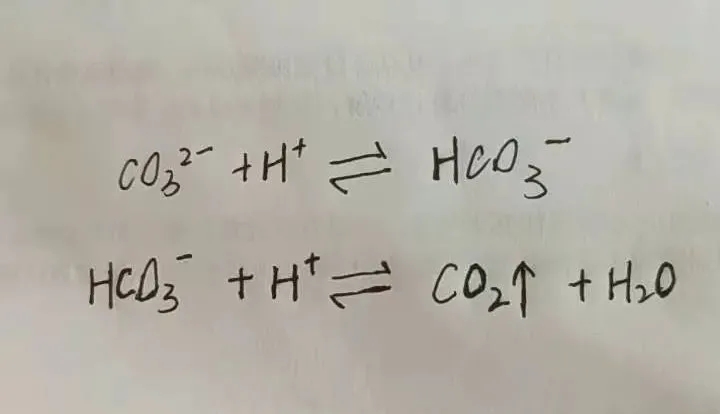 CO₃²⁻ + H⁺ ⇌ HCO₃⁻
HCO₃⁻ + H⁺ ⇌ CO₂↑ + H₂O